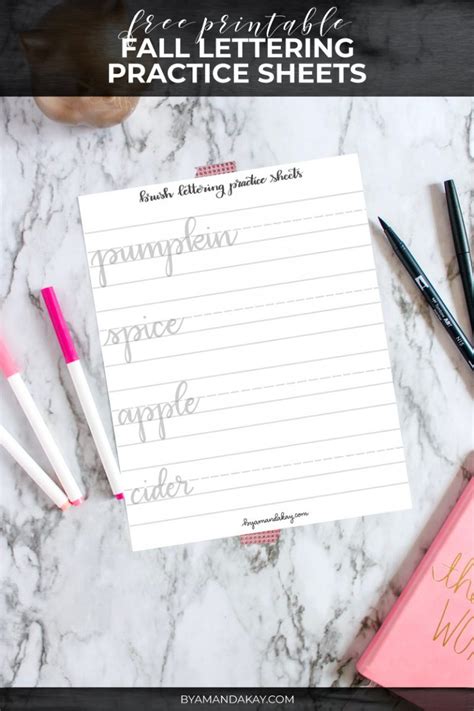 free printable
FALL LETTERING
PRACTICE SHEETS
Brush lettering practice Sheets
pumpkin
spice
apple
cider
byamandakay.com
the
WO
BYAMANDAKAY.COM